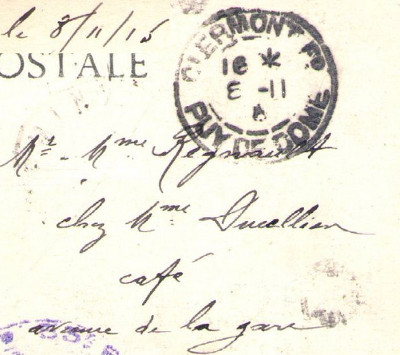 le 8/11/15
POSTALE
CLERMONT Fd
16 *
8 -11
PUY-DE-DOME
Mr. Mme Regnault
chez Mme
café
avenue de la gare